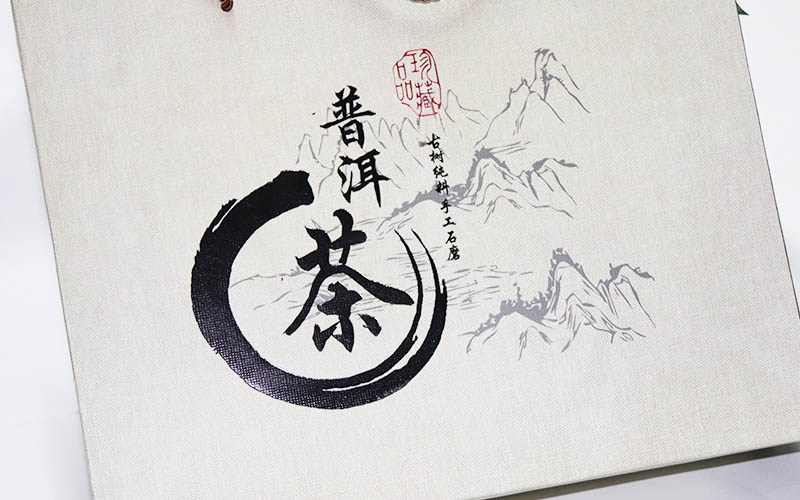 普洱茶
珍藏品
古树纯料手工石磨